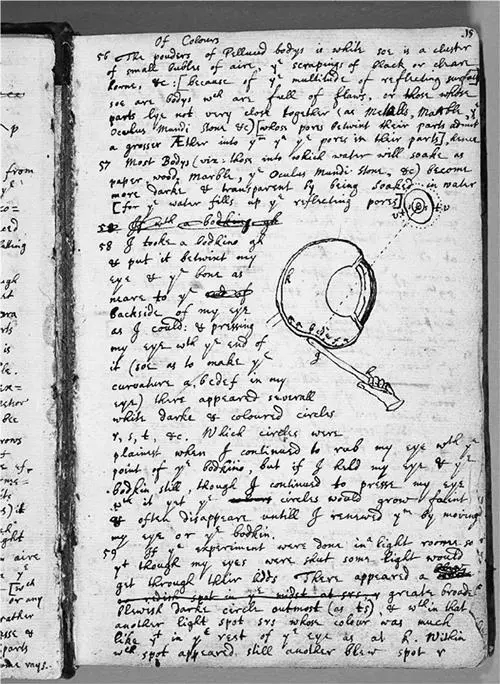 Of Colours
15
56 The pouders of Pellucid bodys is white soe is a cluster
of small bubles of aire, yᵉ scrapings of black or cleare
horne, &c: [because of yᵉ multitude of reflecting surfaces
soe are bodys wᶜʰ are full of flaws, or those whose
parts lye not very close together (as Metalls, Marble, yᵉ
Oculus Mundi stone &c) [whose pores betwixt their parts admit
a grosser Æther into yᵐ yⁿ yᵉ pores in their parts], hence
57 Most Bodys (viz: those into which water will soake as
paper, wood, Marble, yᵉ Oculus Mundi stone, &c) become
more darke & transparent by being soaked in water
[for yᵉ water fills up yᵉ reflecting pores]
58 I tooke a bodkin gh
& put it betwixt my
eye & yᵉ bone as
neare to yᵉ
backside of my eye
as I could: & pressing
my eye wᵗʰ yᵉ end of
it (soe as to make yᵉ
curvature a, bcdef in my
eye) there appeared severall
white darke & coloured circles
r, s, t, &c. Which circles were
plainest when I continued to rub my eye wᵗʰ yᵉ
point of yᵉ bodkine, but if I held my eye & yᵉ
bodkin still though I continued to presse my eye
wᵗʰ it yet yᵉ circles would grow faint
& often disappeare untill I renewed yᵐ by moving
my eye or yᵉ bodkin.
59 If yᵉ experiment were done in a light roome so
yᵗ though my eyes were shut some light would
get through their lidds There appeared a
greate broade
blewish darke circle outmost (as ts), & wᵗʰin that
another light spot srs whose colour was much
like yᵗ in yᵉ rest of yᵉ eye as at k. Within
wᶜʰ spot appeared still another blew spot r